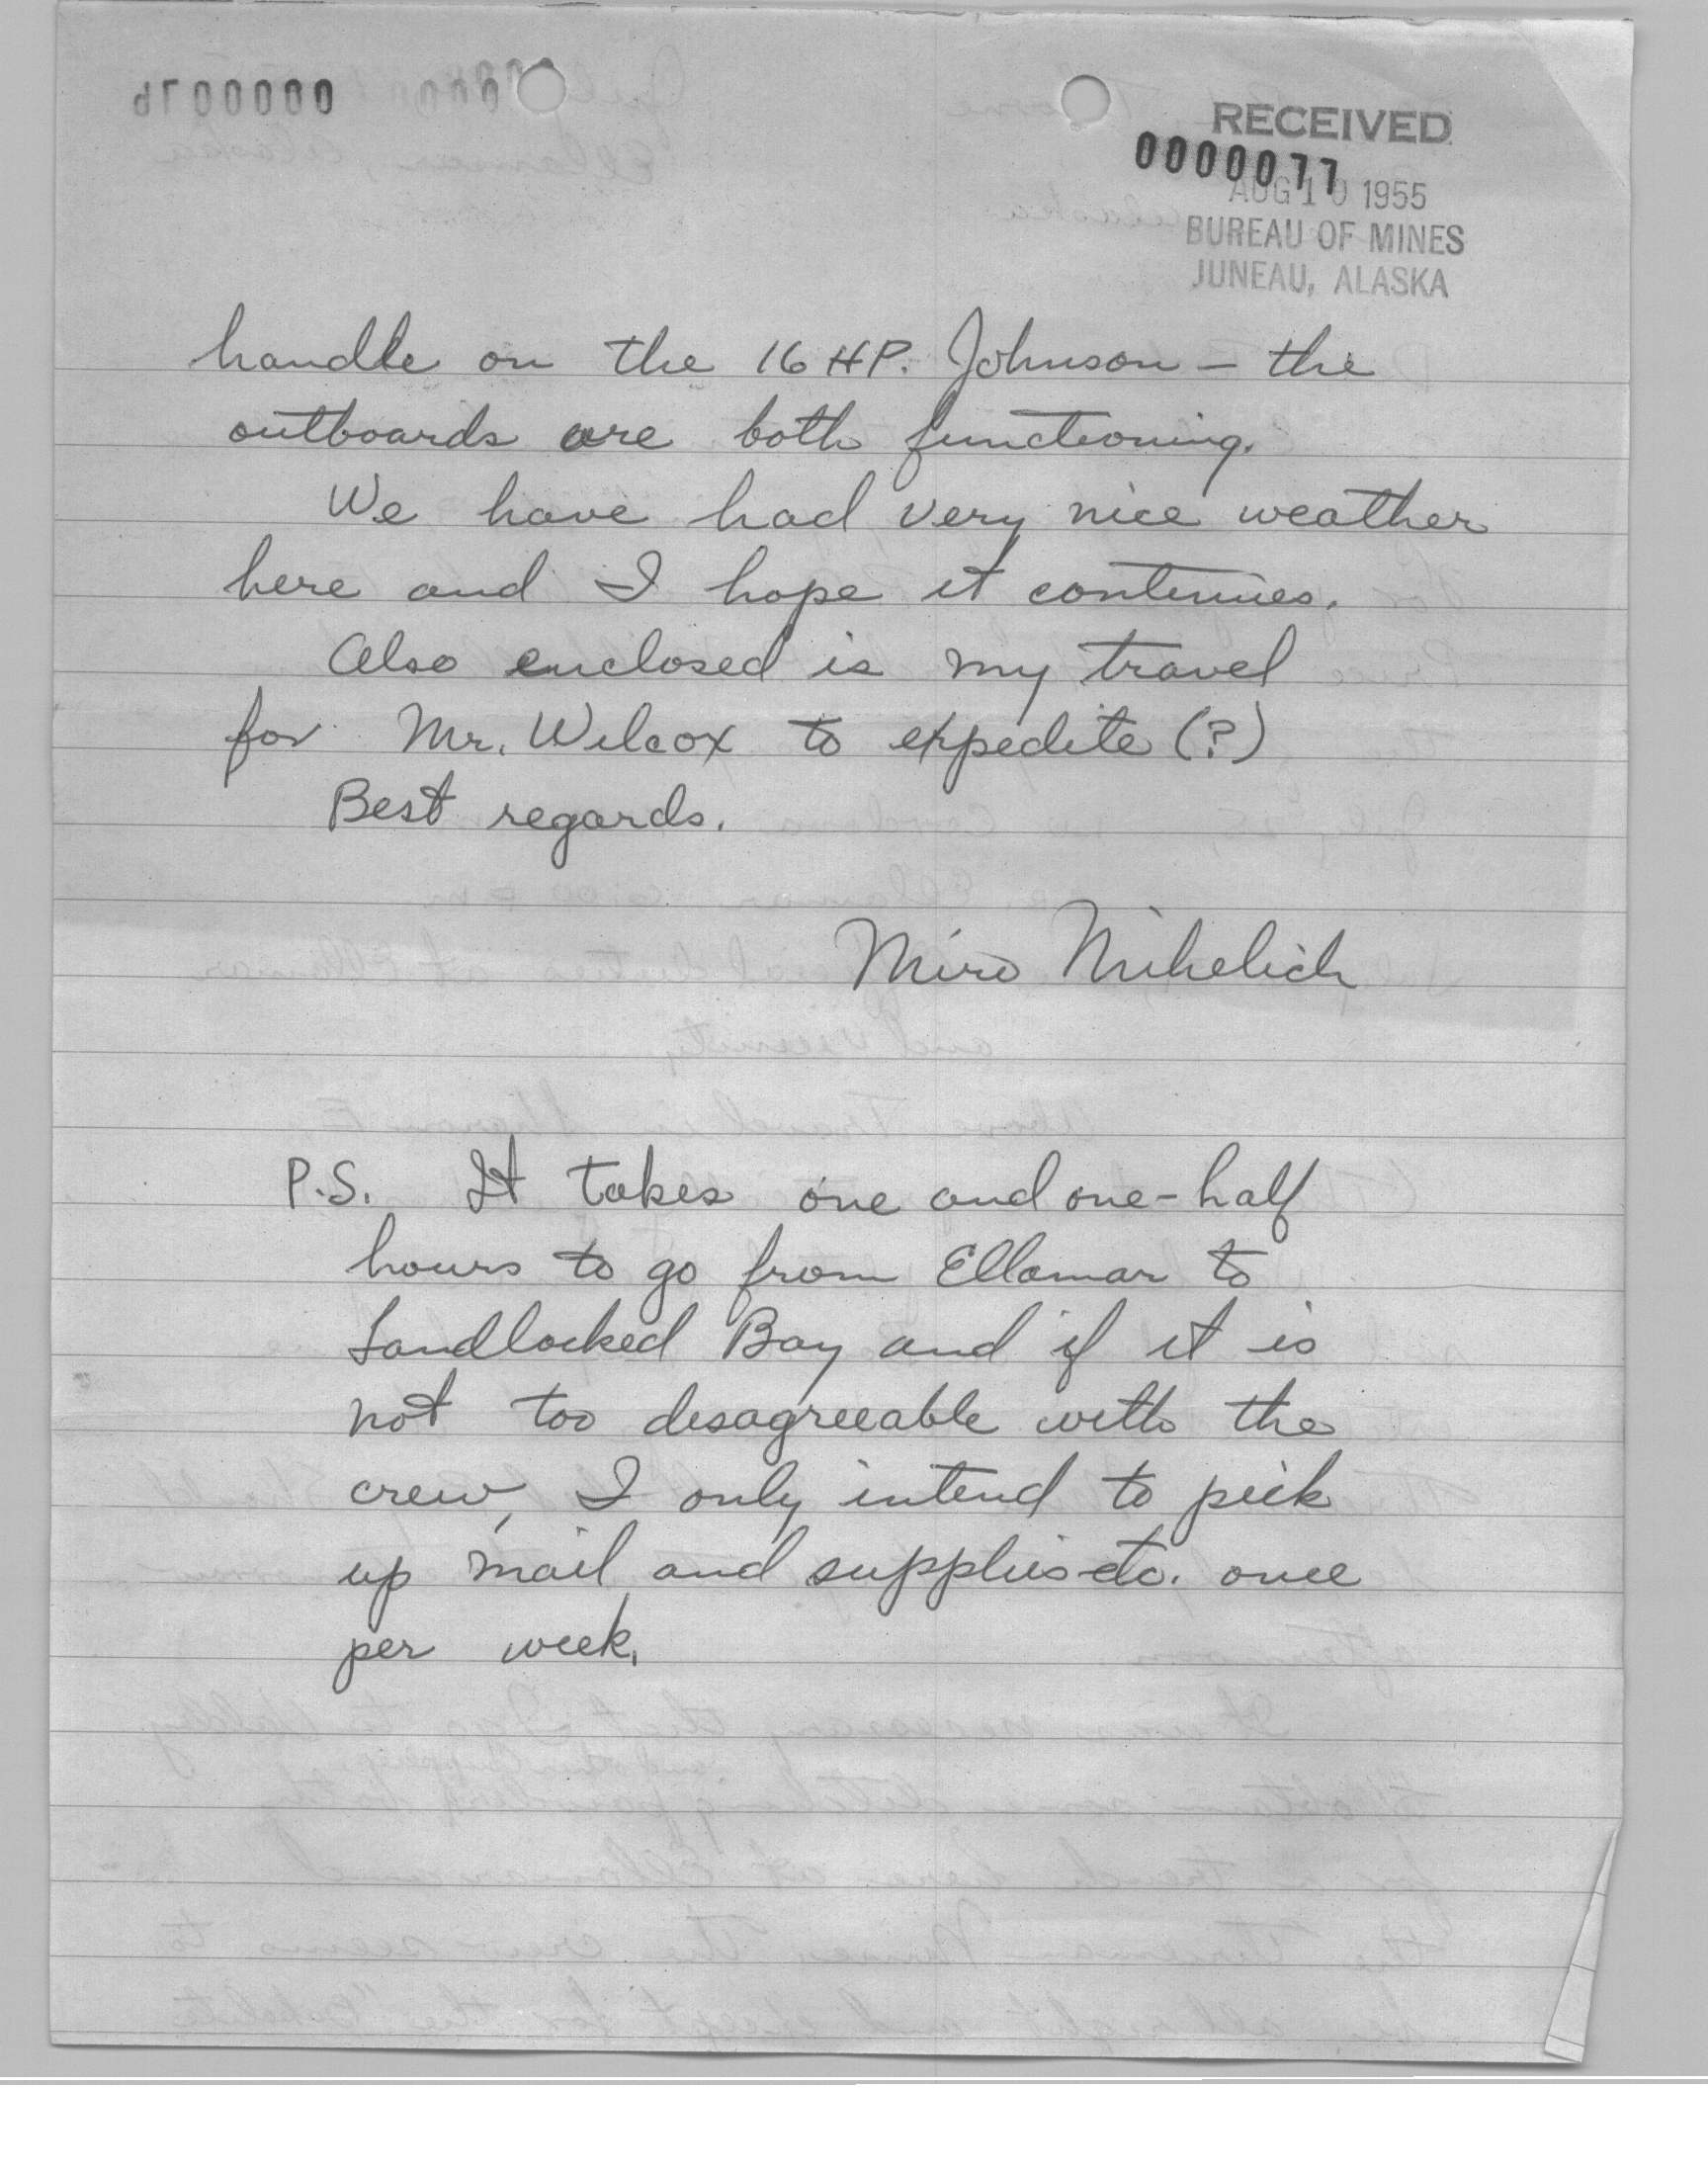 RECEIVED
0000077
AUG 10 1955
BUREAU OF MINES
JUNEAU, ALASKA
handle on the 16 HP. Johnson - the
outboards are both functioning.
We have had very nice weather
here and I hope it continues.
Also enclosed is my travel
for Mr. Wilcox to expedite (?)
Best regards.
Miro Mihelich
P.S. It takes one and one-half
hours to go from Ellamar to
Landlocked Bay and if it is
not too disagreeable with the
crew, I only intend to pick
up mail and supplies etc. once
per week.